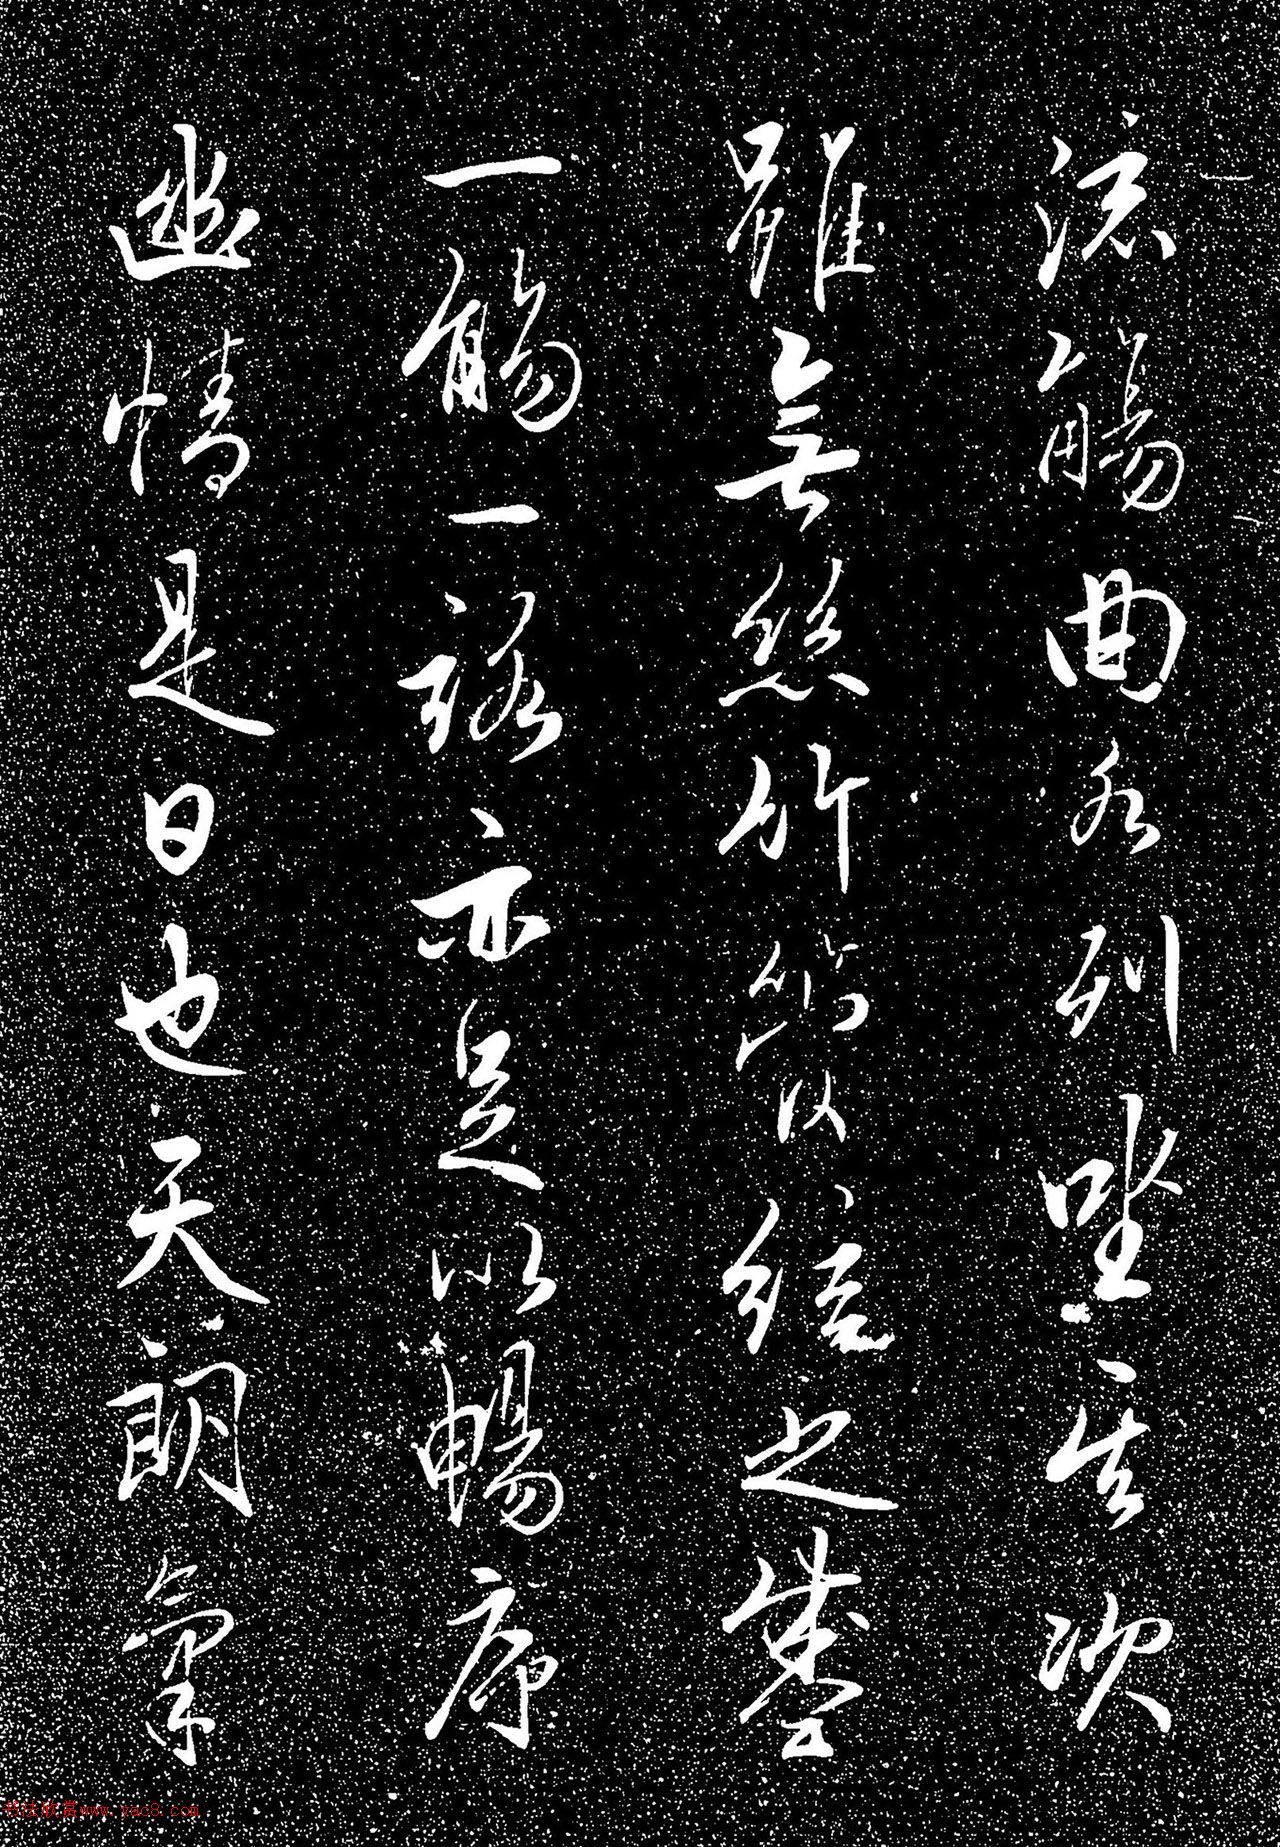 流觴曲水列坐其次
雖無絲竹管絃之盛
一觴一詠亦足以暢序
幽情是日也天朗氣
书法欣赏www.yac8.com